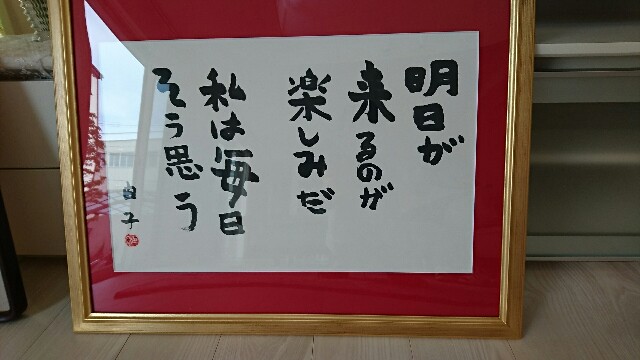 明日が
来るのが
楽しみだ
私は毎日
そう思う
由子